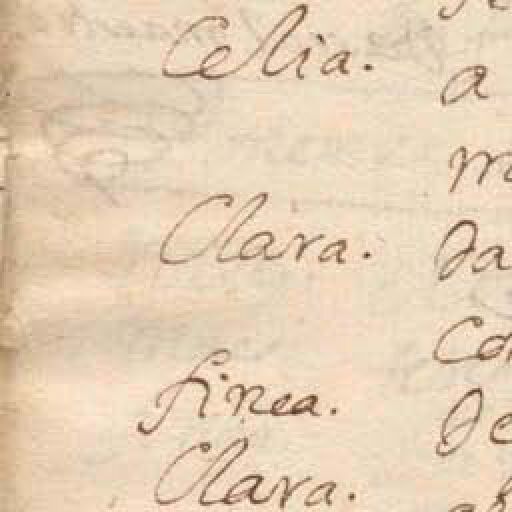 Celia. a
m
Clara. Da
Co
finea. De
Clara.